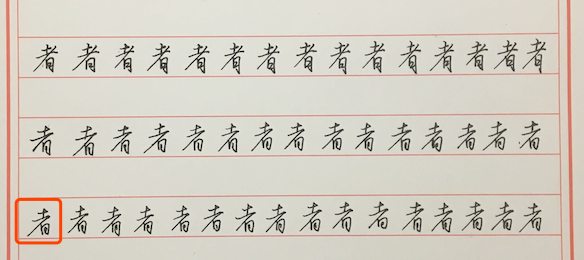 者者者者者者者者者者者者者者者
者者者者者者者者者者者者者者者
者者者者者者者者者者者者者者者者